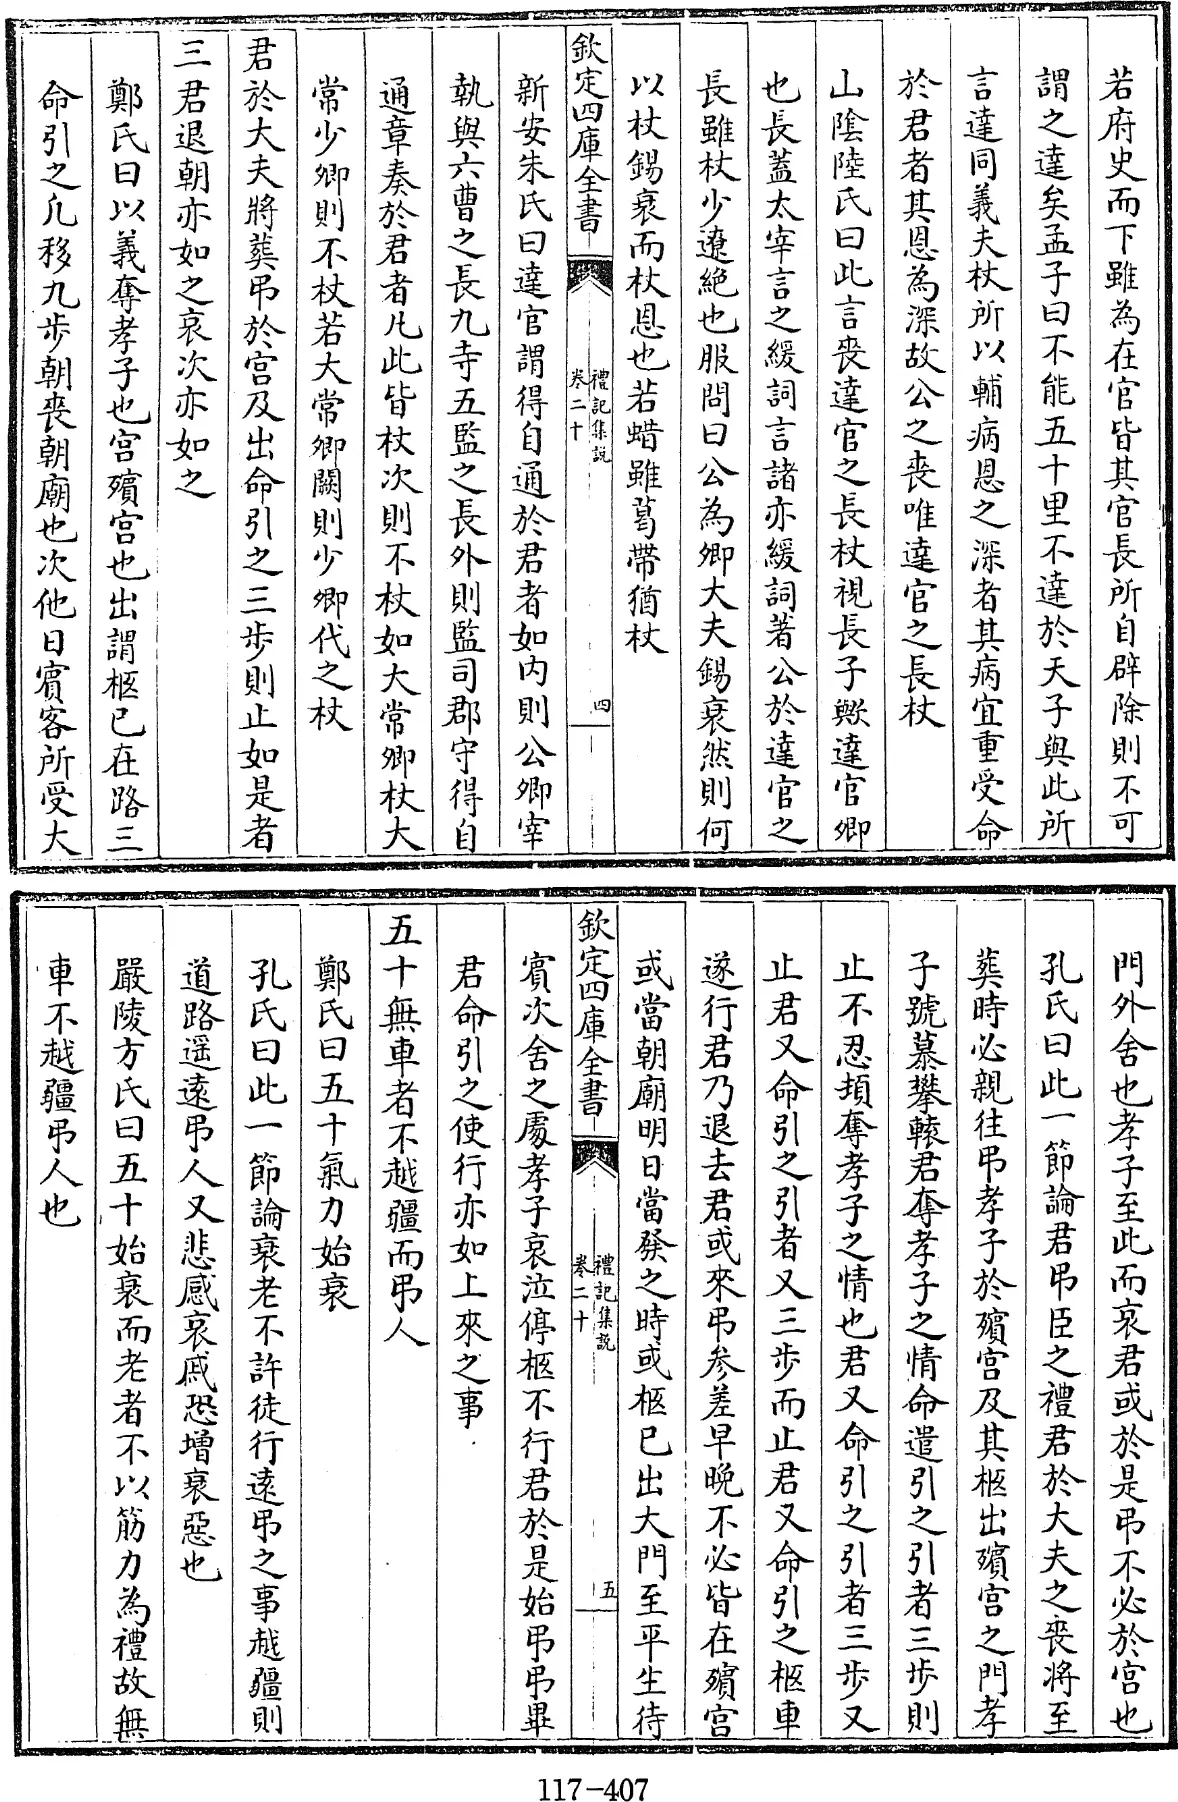 若府史而下雖為在官皆其官長所自辟除則不可
謂之達矣孟子曰不能五十里不達於天子與此所
言達同義夫杖所以輔病恩之深者其病宜重受命
於君者其恩為深故公之喪唯達官之長杖
山隂陸氏曰此言喪達官之長杖視長子歟達官卿
也長蓋太宰言之緩詞言諸亦緩詞著公於達官之
長雖杖少遼絶也服問曰公為卿大夫錫衰然則何
以杖錫衰而杖恩也若蜡雖葛帶猶杖
欽定四庫全書
禮記集説
卷二十
四
新安朱氏曰達官謂得自通於君者如内則公卿宰
執與六曹之長九寺五監之長外則監司郡守得自
通章奏於君者凡此皆杖次則不杖如大常卿杖大
常少卿則不杖若大常卿闕則少卿代之杖
君於大夫將葬弔於宮及出命引之三步則止如是者
三君退朝亦如之哀次亦如之
鄭氏曰以義奪孝子也宮殯宮也出謂柩已在路三
命引之凡移九步朝喪朝廟也次他日賓客所受大
門外舍也孝子至此而哀君或於是弔不必於宮也
孔氏曰此一節論君弔臣之禮君於大夫之喪將至
葬時必親往弔孝子於殯宮及其柩出殯宮之門孝
子號慕攀轅君奪孝子之情命遣引之引者三步則
止不忍頓奪孝子之情也君又命引之引者三步又
止君又命引之引者又三步而止君又命引之柩車
遂行君乃退去君或來弔參差早晚不必皆在殯宮
或當朝廟明日當發之時或柩已出大門至平生待
欽定四庫全書
禮記集説
卷二十
五
賓次舍之處孝子哀泣停柩不行君於是始弔弔畢
君命引之使行亦如上來之事
五十無車者不越疆而弔人
鄭氏曰五十氣力始衰
孔氏曰此一節論衰老不許徒行遠弔之事越疆則
道路遥遠弔人又悲感哀戚恐增衰惡也
嚴陵方氏曰五十始衰而老者不以筋力為禮故無
車不越疆弔人也
117-407